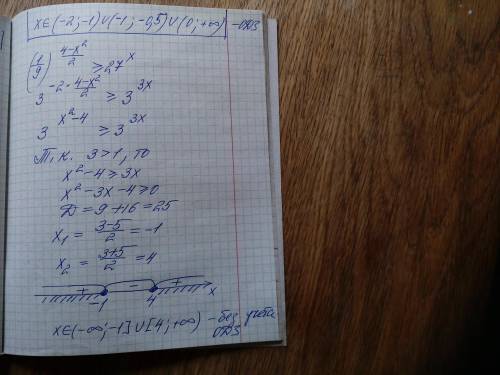 x∈(-2;-1)∪(-1;-0,5)∪(0;+∞) -ОДЗ
(1/9)^((4-x²)/2) ≥ 27^x
3^(-2·(4-x²)/2) ≥ 3^(3x)
3^(x²-4) ≥ 3^(3x)
Т.к. 3>1, то
x²-4≥3x
x²-3x-4≥0
Д=9+16=25
x₁ = (3-5)/2 = -1
x₂ = (3+5)/2 = 4
+ - +
-1 4 x
x∈(-∞;-1]∪[4;+∞) -без учёта
ОДЗ